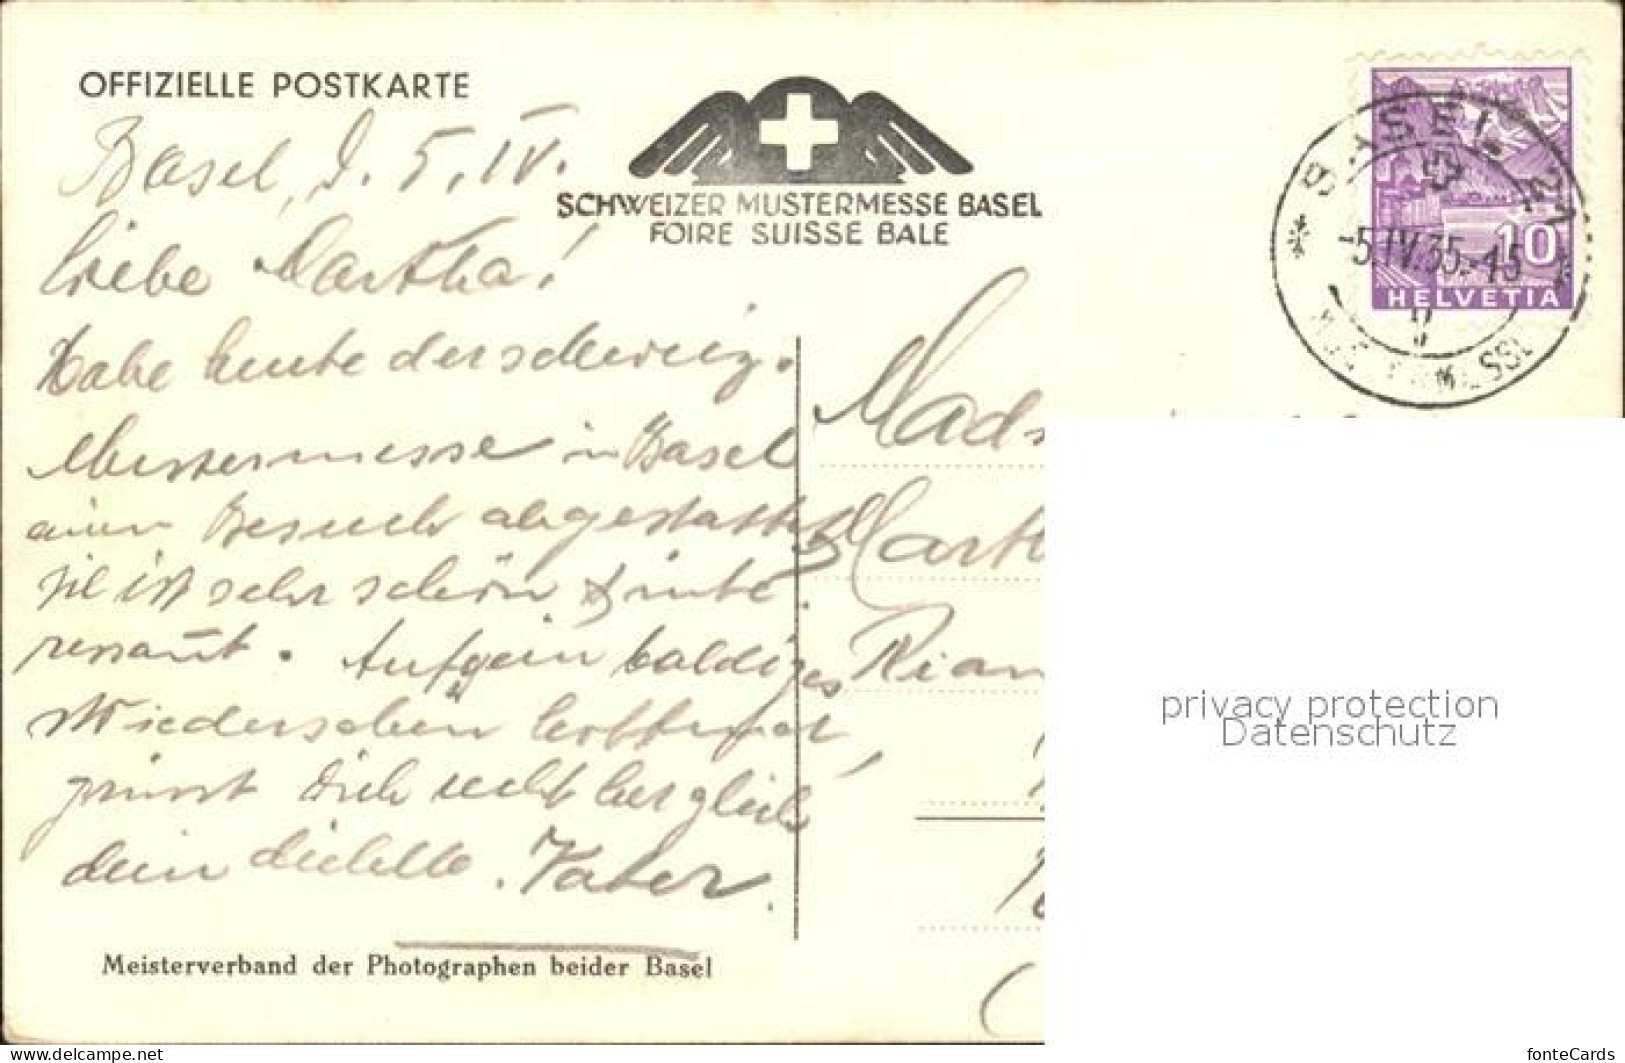 OFFIZIELLE POSTKARTE
SCHWEIZER MUSTERMESSE BASEL
FOIRE SUISSE BALE
BASEL 21
-5.IV.35.-15
10
HELVETIA
Basel, d. 5. IV.
Liebe Martha!
Habe heute der schweiz.
Mustermesse in Basel
einen Besuch abgestattet
sie ist sehr schön & inte
ressant. Auf ein baldiges
Wiedersehen hoffend
grüsst Dich recht herzlich
dein Vater.
Meisterverband der Photographen beider Basel
Mad
Marth
Rian
privacy protection
Datenschutz
www.delcampe.net
fonteCards